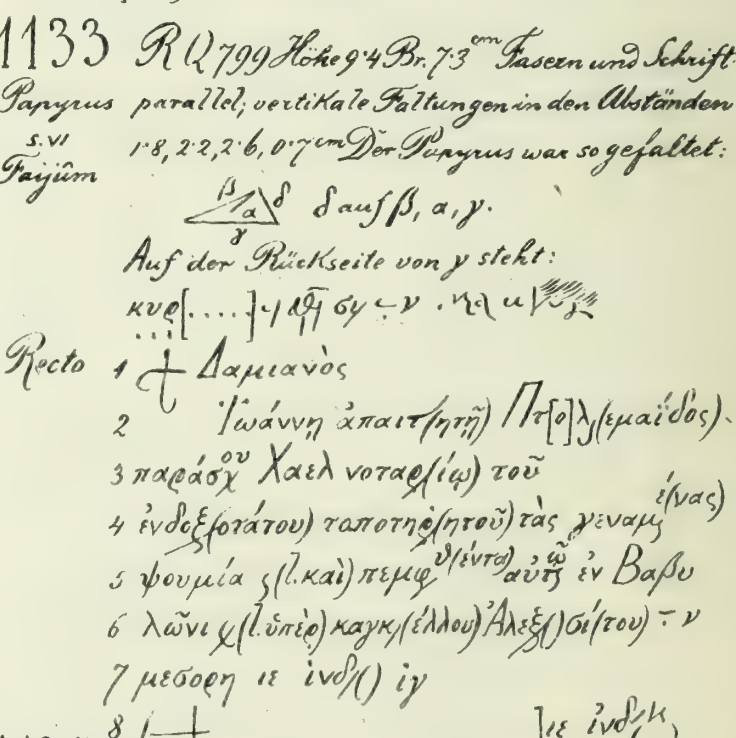 1133 R Q 799 Höhe 9·4 Br. 7·3 cm Fasern und Schrift
Papyrus parallel; vertikale Faltungen in den Abständen
s. VI 1·8, 2·2, 2·6, 0·7 cm Der Papyrus war so gefaltet:
Faijûm
β α δ γ δ auf β, α, γ.
Auf der Rückseite von γ steht:
κυρ[.....]
Recto 1 Δαμιανὸς
2 Ἰωάννῃ ἀπαιτ(ητῇ) Πτ[ο]λ(εμαΐδος).
3 παράσχου Χαελ νοταρ(ίῳ) τοῦ
4 ἐνδοξ(οτάτου) ταποτηρ(ητοῦ) τὰς γεναμε(ίνας)
5 ψουμία ς (l. καὶ) πεμφθ(έντα) αὐτῷ ἐν Βαβυ
6 λῶνι (l. ὑπὲρ) καγκ(έλλου) Ἀλεξ() σί(του) ÷ ν
7 μεσορη ιε ἰνδ/() ιγ
8 ]ιε ἰνδ/